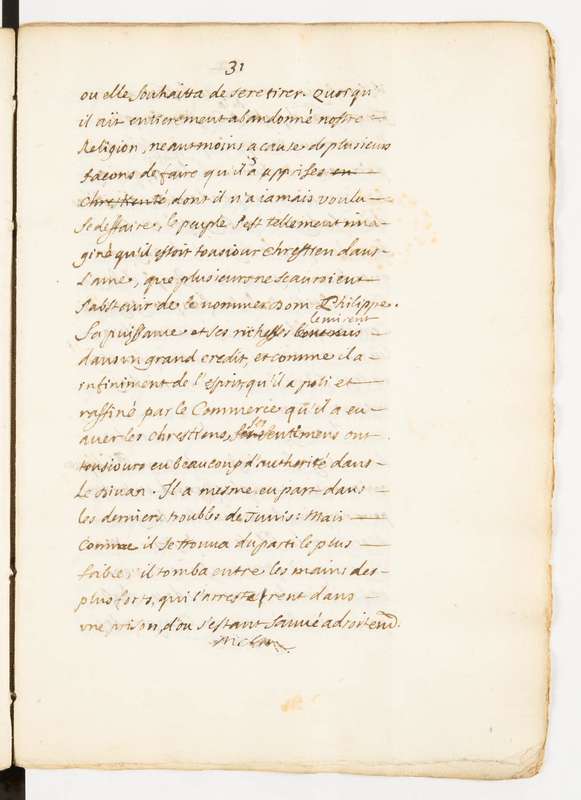 31
ou elle souhaitta de se retirer. Quoi qu
il ait entierement abandonné nostre
Religion, neantmoins a cause de plusieurs
facons de faire qu'il a apprises en
Chrestienté, dont il n'a iamais voulu
se deffaire, le peuple s'est tellement ima
giné qu'il estoit tousiour chrestien dans
l'ame, que plusieurs ne scauroient
s'abstenir de le nommer Dom Philippe.
le mirent
Sa puissance et ses richesses l'ont mis
dans un grand credit, et comme il a
infiniment de l'esprit, qu'il a poli et
raffiné par le Commerce qu'il a eu
avec les chrestiens, ses sentimens ont
tousiours eu beaucoup d'authorité dans
le Divan. Il a mesme eu part dans
les derniers troubles de Tunis: Mais
Comme il se trouva du parti le plus
foible, il tomba entre les mains des
plus forts, qui l'arresterent dans
une prison, d'ou s'estant sauvé adroitem